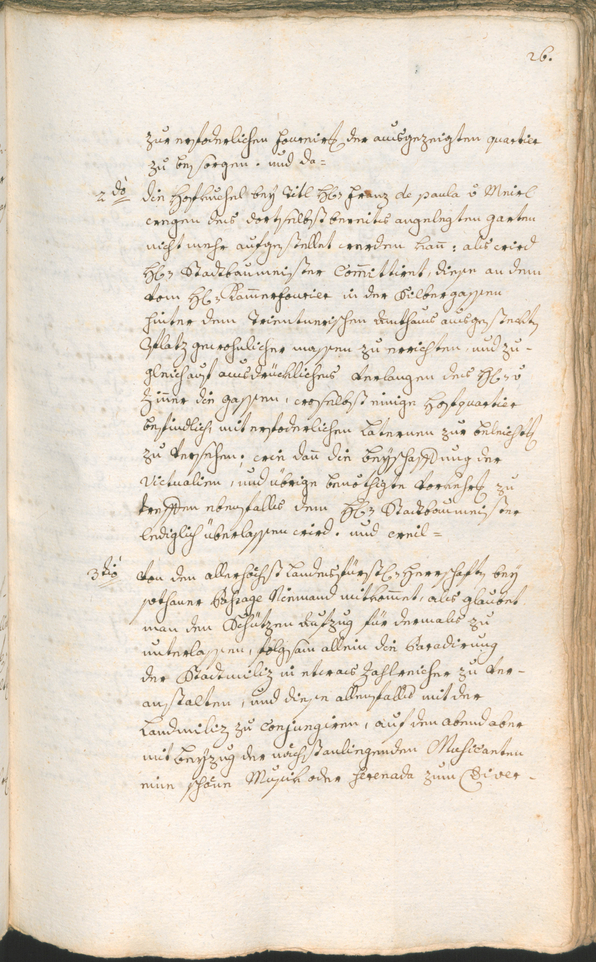 26.
zur erforderlichen fourir: der ausgezeigten quartier
zu besorgen. und da=
2do die Hofkuchel bey Titl H: Franz de paula v Meirl
wegen des dortselbst bereits angelegten garten
nicht mehr aufgestellet werden kan: als wird
H: Stadtbaumeister Committirt, diese an dem
vom H: Kammerfourier in der Silbergassen
hinter dem Trientnerischen Amthaus ausgestelten
Platz gewohnlicher massen zu errichten, und zu-
gleich auf ausdrückliches verlangen des H: v
Zinner die gassen, woselbst einige Hofquartier
befindlich, mit erforderlichen Laternen zur beleicht:
zu versehen. wie dan die beyschaffung der
Victualien, und übrige benöthigte vorkehr: zu
treffen ebenfalls dem H: Stadtbaumeister
lediglich überlassen wird. und weil=
3tio von den allerhöchst Landesfürstl: Herrschaften bey
sothaner Passage Niemand mitkommet, als glaubet
man den Schützen Aufzug für dermals zu
unterlassen, folgsam allein die Paradirung
der Stadtmiliz in etwas zahlreicher zu ver-
anstalten, und diese allenfalls mit der
Landmiliz zu conjungiren, auf den abend aber
mit beyzug der nächst anligenden Musicanten
eine schöne Musik oder Serenada zum Diver-